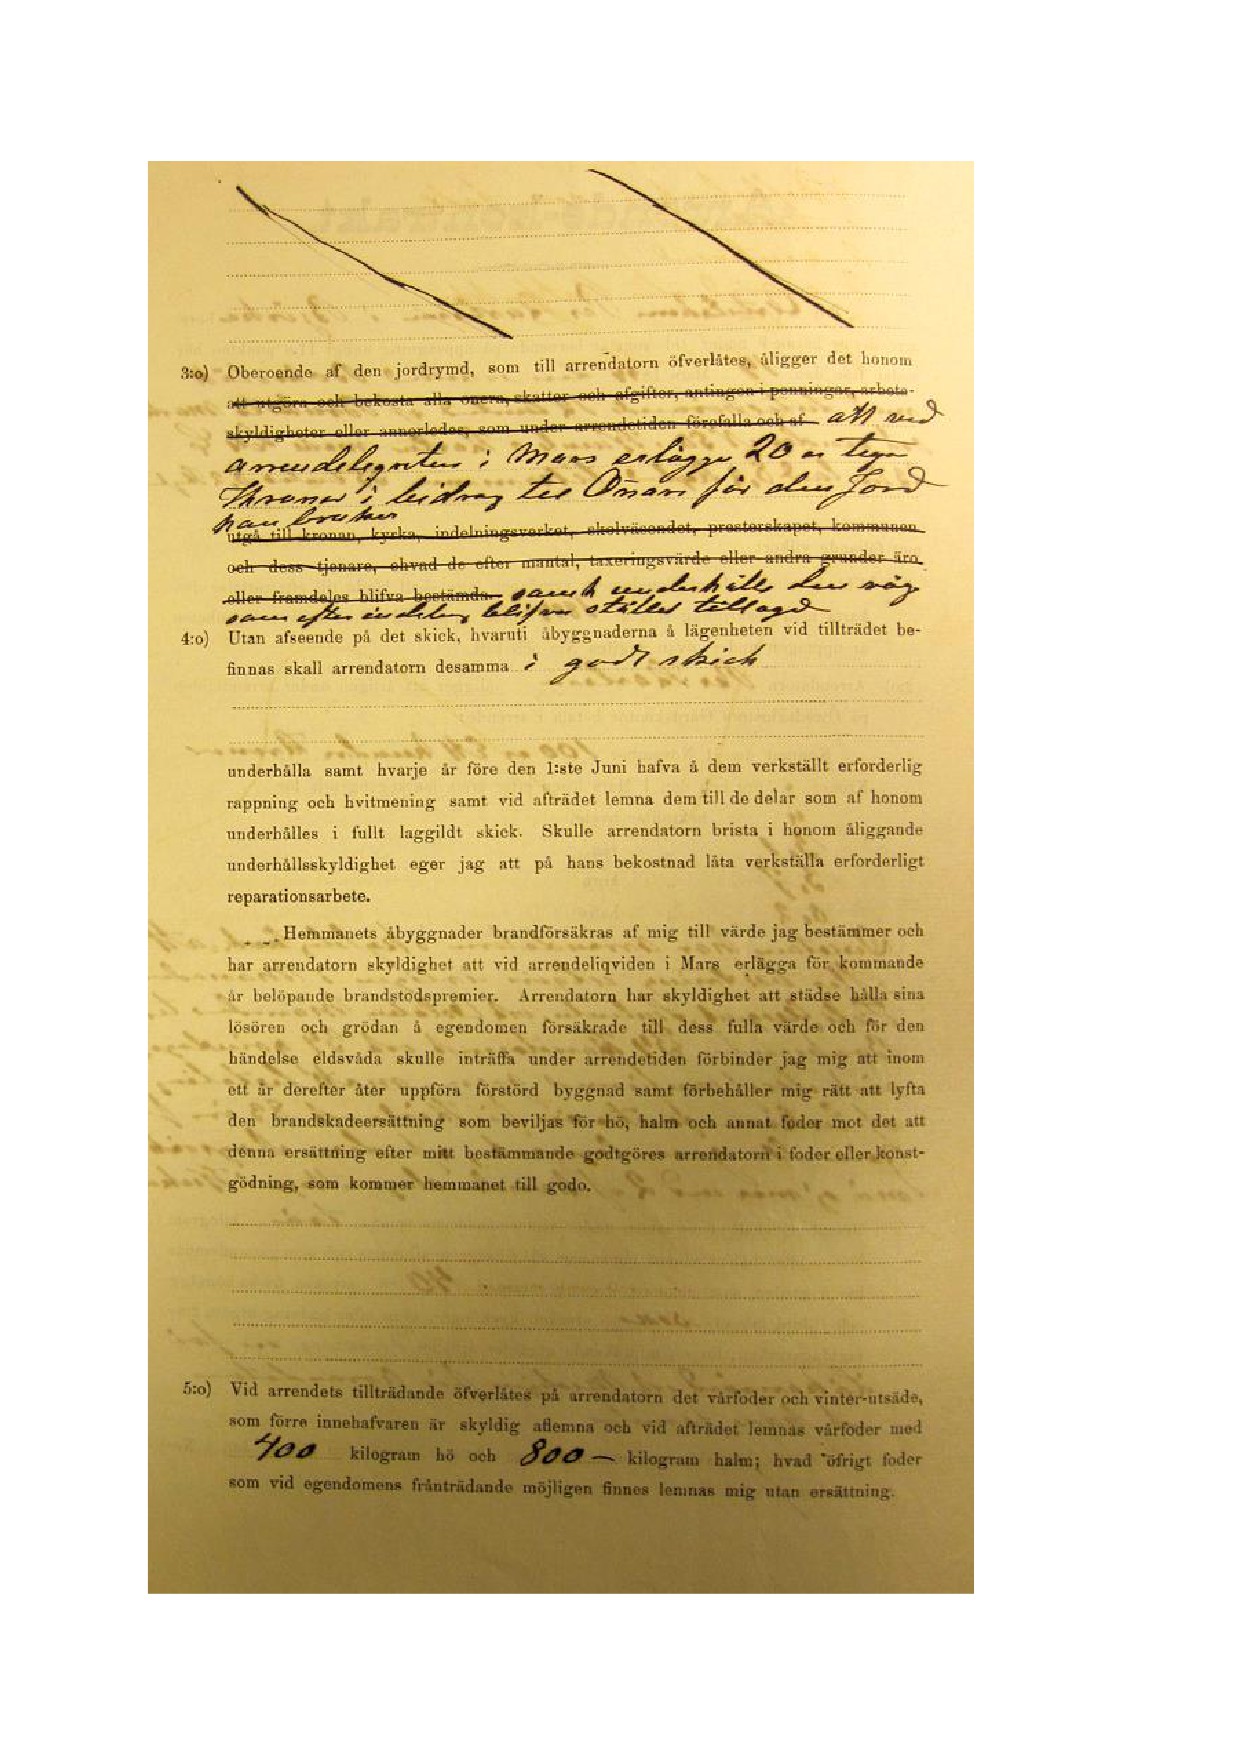 3:o) Oberoende af den jordrymd, som till arrendatorn öfverlåtes, åligger det honom
att utgöra och bekosta alla onera, skatter och afgifter, antingen i penningar, arbets-
skyldigheter eller annorledes, som under arrendetiden förefalla och af att ved
arrendeliqviten i Mars erlägga 20 = tjugo
Kronor i bidrag till Onera för den Jord
han brukar
utgå till kronan, kyrka, indelningsverket, skolväsendet, presterskapet, kommunen
och dess tjenare, ehvad de efter mantal, taxeringsvärde eller andra grunder äro
eller framdeles blifva bestämda. samt underhålla den väg
som efter indelning blifver stället tillagd
4:o) Utan afseende på det skick, hvaruti åbyggnaderna å lägenheten vid tillträdet be-
finnas skall arrendatorn desamma i godt skick
underhålla samt hvarje år före den 1:ste Juni hafva å dem verkställt erforderlig
rappning och hvitmening samt vid afträdet lemna dem till de delar som af honom
underhålles i fullt laggildt skick. Skulle arrendatorn brista i honom åliggande
underhållsskyldighet eger jag att på hans bekostnad låta verkställa erforderligt
reparationsarbete.
Hemmanets åbyggnader brandförsäkras af mig till värde jag bestämmer och
har arrendatorn skyldighet att vid arrendeliqviden i Mars erlägga för kommande
år belöpande brandstodspremier. Arrendatorn har skyldighet att städse hålla sina
lösören och grödan å egendomen försäkrade till dess fulla värde och för den
händelse eldsvåda skulle inträffa under arrendetiden förbinder jag mig att inom
ett år derefter åter uppföra förstörd byggnad samt förbehåller mig rätt att lyfta
den brandskadeersättning som beviljas för hö, halm och annat foder mot det att
denna ersättning efter mitt bestämmande godtgöres arrendatorn i foder eller konst-
gödning, som kommer hemmanet till godo.
5:o) Vid arrendets tillträdande öfverlåtes på arrendatorn det vårfoder och vinter-utsäde,
som förre innehafvaren är skyldig aflemna och vid afträdet lemnas vårfoder med
400 kilogram hö och 800 — kilogram halm; hvad öfrigt foder
som vid egendomens frånträdande möjligen finnes lemnas mig utan ersättning.